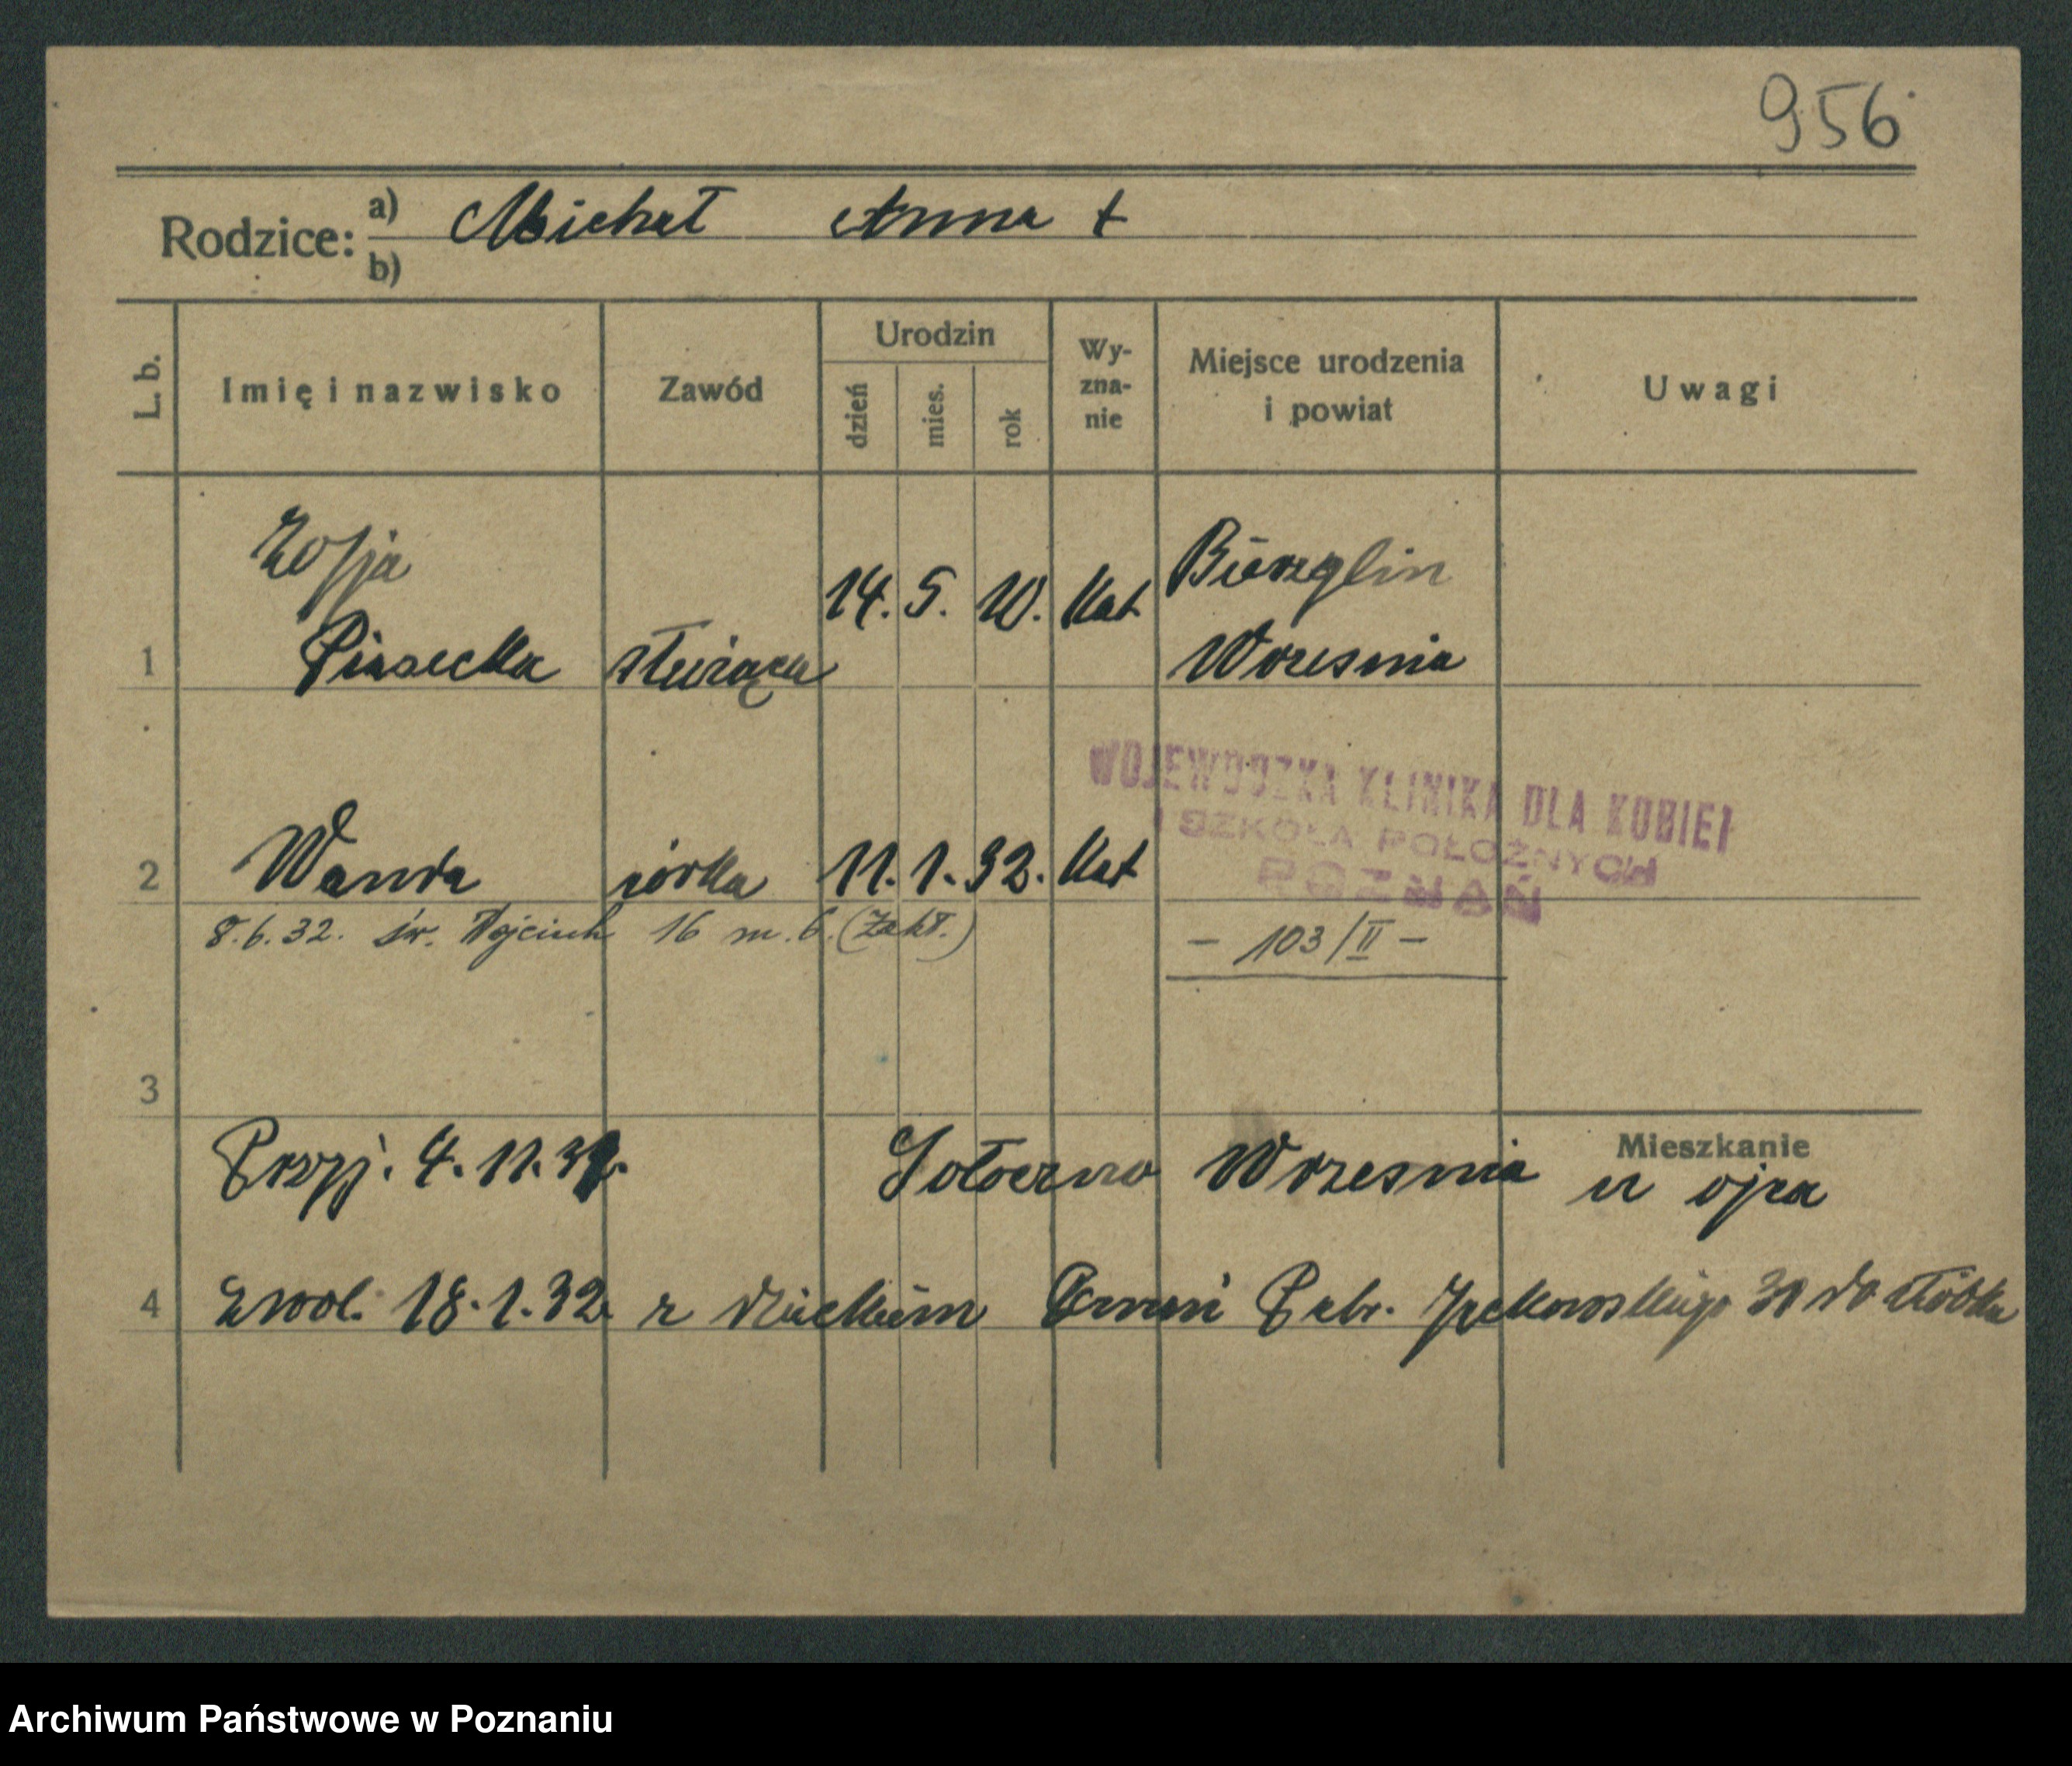 956
Rodzice: a) Michał Anna +
b)
L. b. Imię i nazwisko Zawód Urodzin dzień mies. rok Wy-zna-nie Miejsce urodzenia i powiat Uwagi
Zofja Bierzglin
1 Piasecka służąca 14. 5. 10. Kat Wrzesnia
WOJEWÓDZKA KLINIKA DLA KOBIET
I SZKOŁA POŁOŻNYCH
POZNAŃ
2 Wanda córka 11. 1. 32. Kat
8.6.32. św. Wojciech 16 m. 6. (Zakł.)
- 103/II -
3
Mieszkanie
Przyj. 4. 11. 31. Wrzesnia u ojca
4 zwol. 18. 1. 32. z dzieckiem do żłóbka
Archiwum Państwowe w Poznaniu